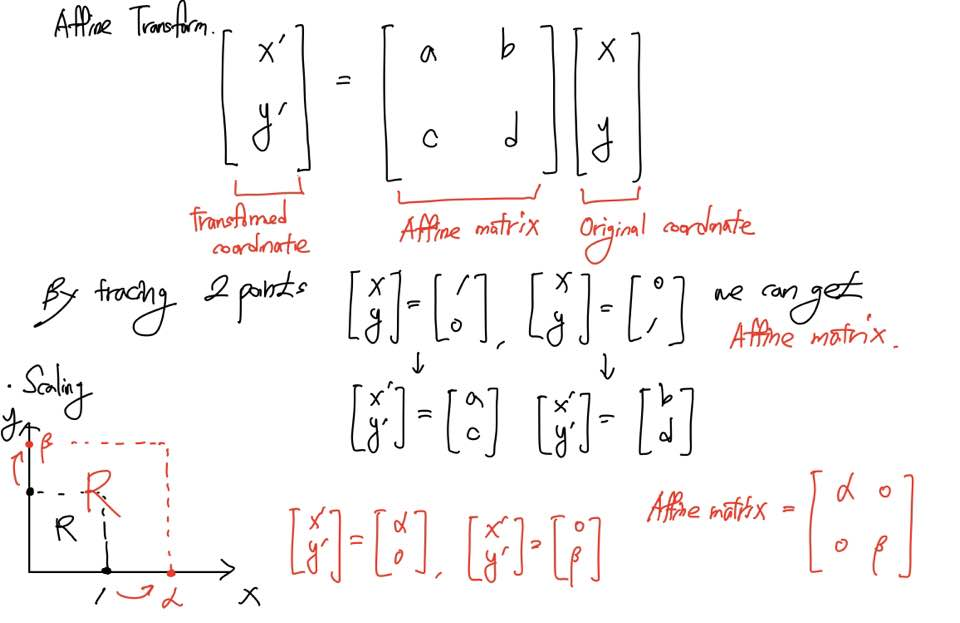 Affine Transform.
[x' y'] = [a b c d] [x y]
Transfirmed coordnatie
Affine matrix
Original coordnate
By tracing 2 points [x y] = [1 0], [x y] = [0 1] we can get
Affine matrix.
↓ ↓
[x' y'] = [a c] [x' y'] = [b d]
· Scaling
y
β
R
R
1
α
x
[x' y'] = [α 0], [x' y'] = [0 β]
Affine matrix = [α 0 0 β]